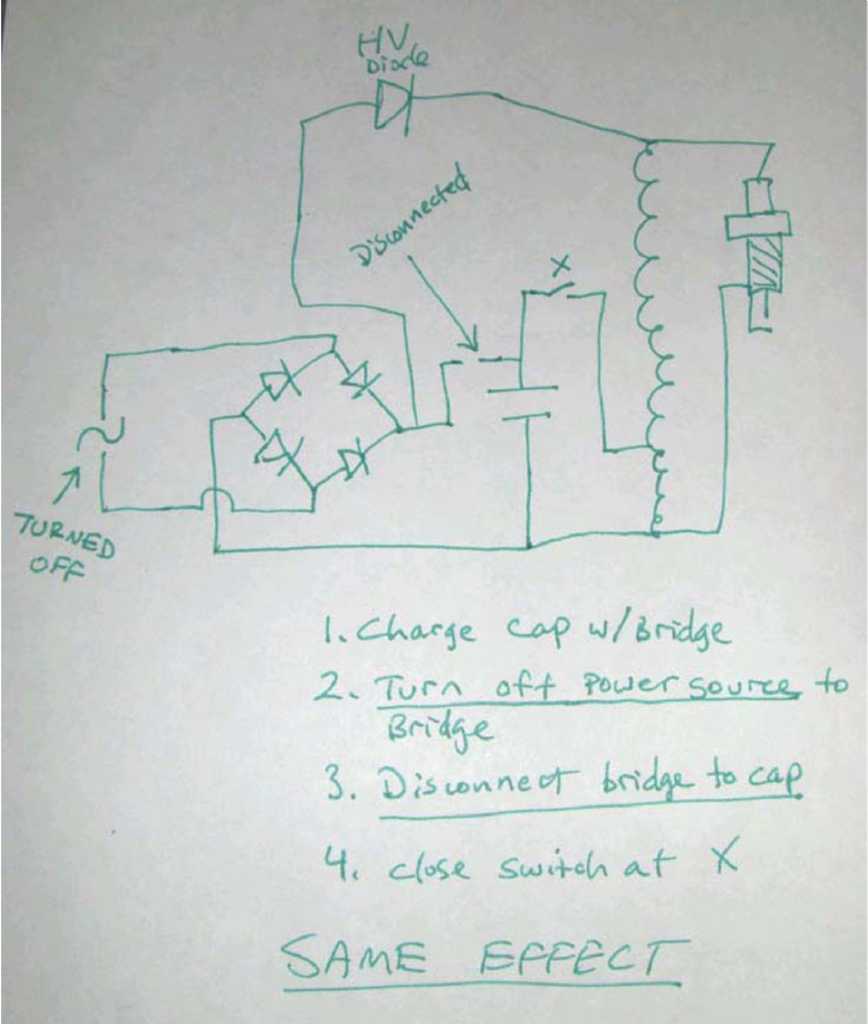 HV
Diode
Disconnected
X
TURNED
OFF
1. Charge cap w/Bridge
2. Turn off power source to
Bridge
3. Disconnect bridge to cap
4. close switch at X
SAME EFFECT